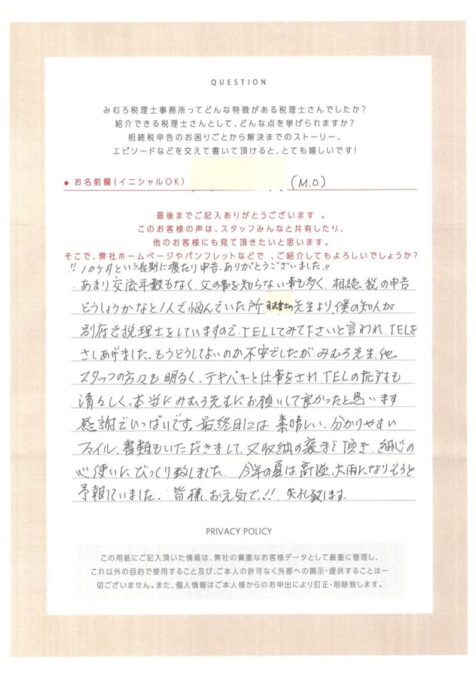 QUESTION
みむろ税理士事務所ってどんな特徴がある税理士さんでしたか？
紹介できる税理士さんとして、どんな点を挙げられますか？
相続税申告のお困りごとから解決までのストーリー、
エピソードなどを交えて書いて頂けると、とても嬉しいです！
● お名前欄（イニシャルOK） (M.O)
最後までご記入ありがとうございます 。
このお客様の声は、スタッフみんなと共有したり、
他のお客様にも見て頂きたいと思います。
そこで、弊社ホームページやパンフレットなどで 、ご紹介してもよろしいでしょうか？
!! 10ヶ月という長期に渡たり申告、ありがとうございました!!
あまり交流年数もなく 父の事を知らない事も多く、相続税の申告
どうしようかなと1人で悩んでいた所 先生より、僕の知人が
別府で税理士をしていますので TELしてみて下さいと言われ、TELを
さしあげました。もうどうしてよいのか不安でしたが みむろ先生、他
スタッフの方々も 明るく、テキパキと仕事をされ、TELの応対も
清々しく、本当に みむろ先生に お願いして良かったと思います
感謝でいっぱいです。最終日には 素晴しい、分かりやすい
ファイル、書類もいただきまして、又収納の袋まで頂き、細心の
心使いに びっくり致しました。今年の夏は高温、大雨になりそうと
予報していました。皆様、お元気で、!! 失礼致します。
PRIVACY POLICY
この用紙にご記入頂いた情報は、弊社の貴重なお客様データとして厳重に管理し、
これ以外の目的で使用すること及び、ご本人の許可なく外部への開示・提供することは一
切ございません。また、個人情報はご本人様からのお申出により訂正・削除致します。